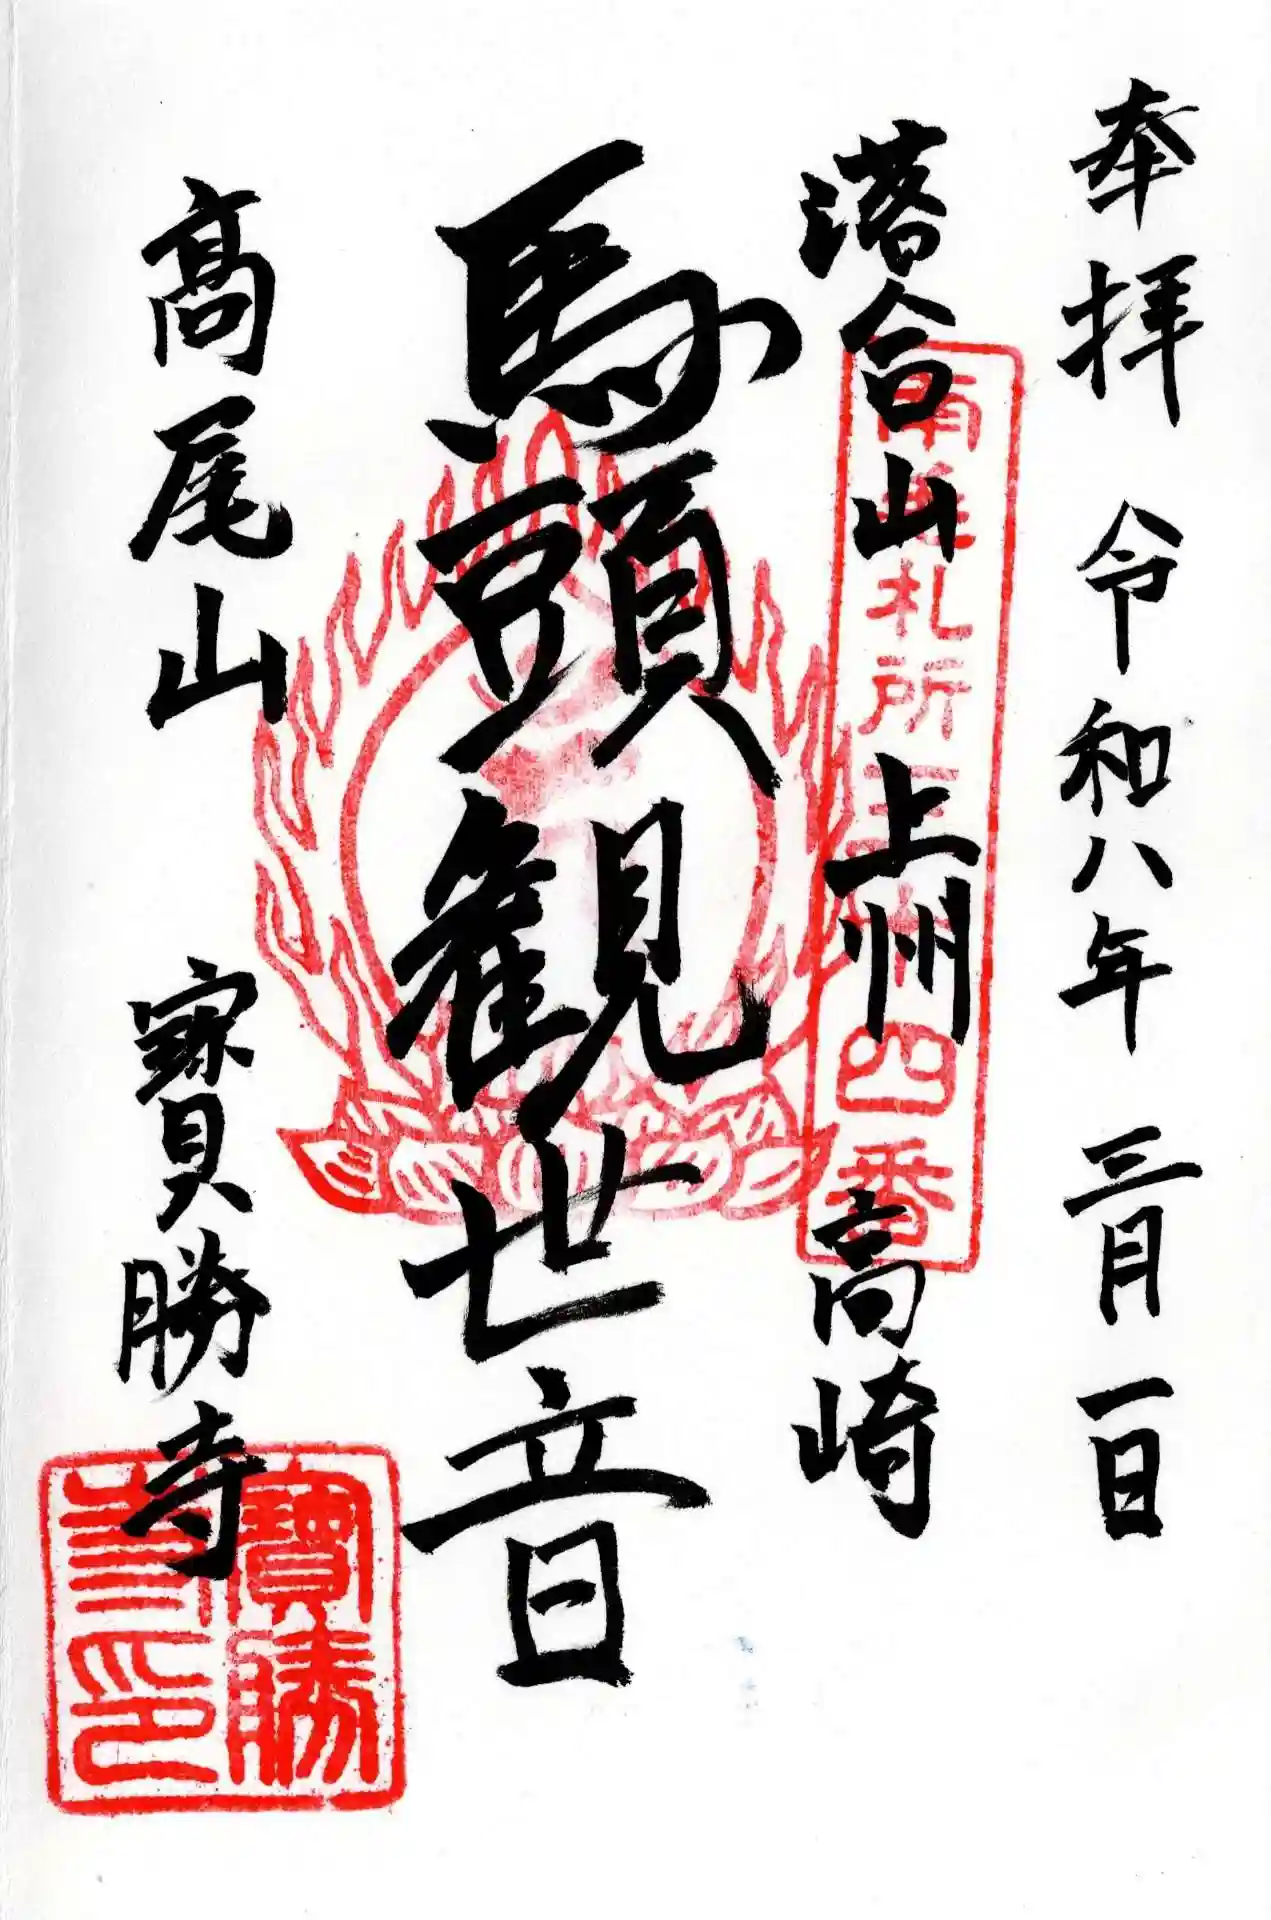 奉拝 令和八年 三月一日
落合山 上州 高崎
南毛札所 四番
馬頭観世音
髙尾山 寳勝寺
寶勝
寺印